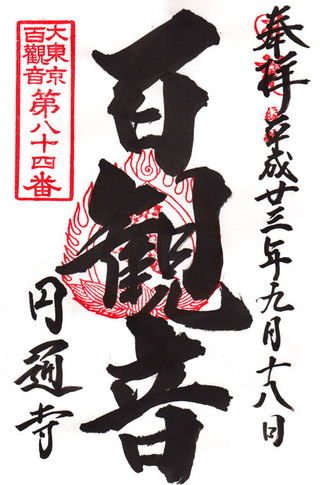 奉拝 平成廿三年九月十八日
百觀音
大東京
百觀音
第八十四番
円通寺